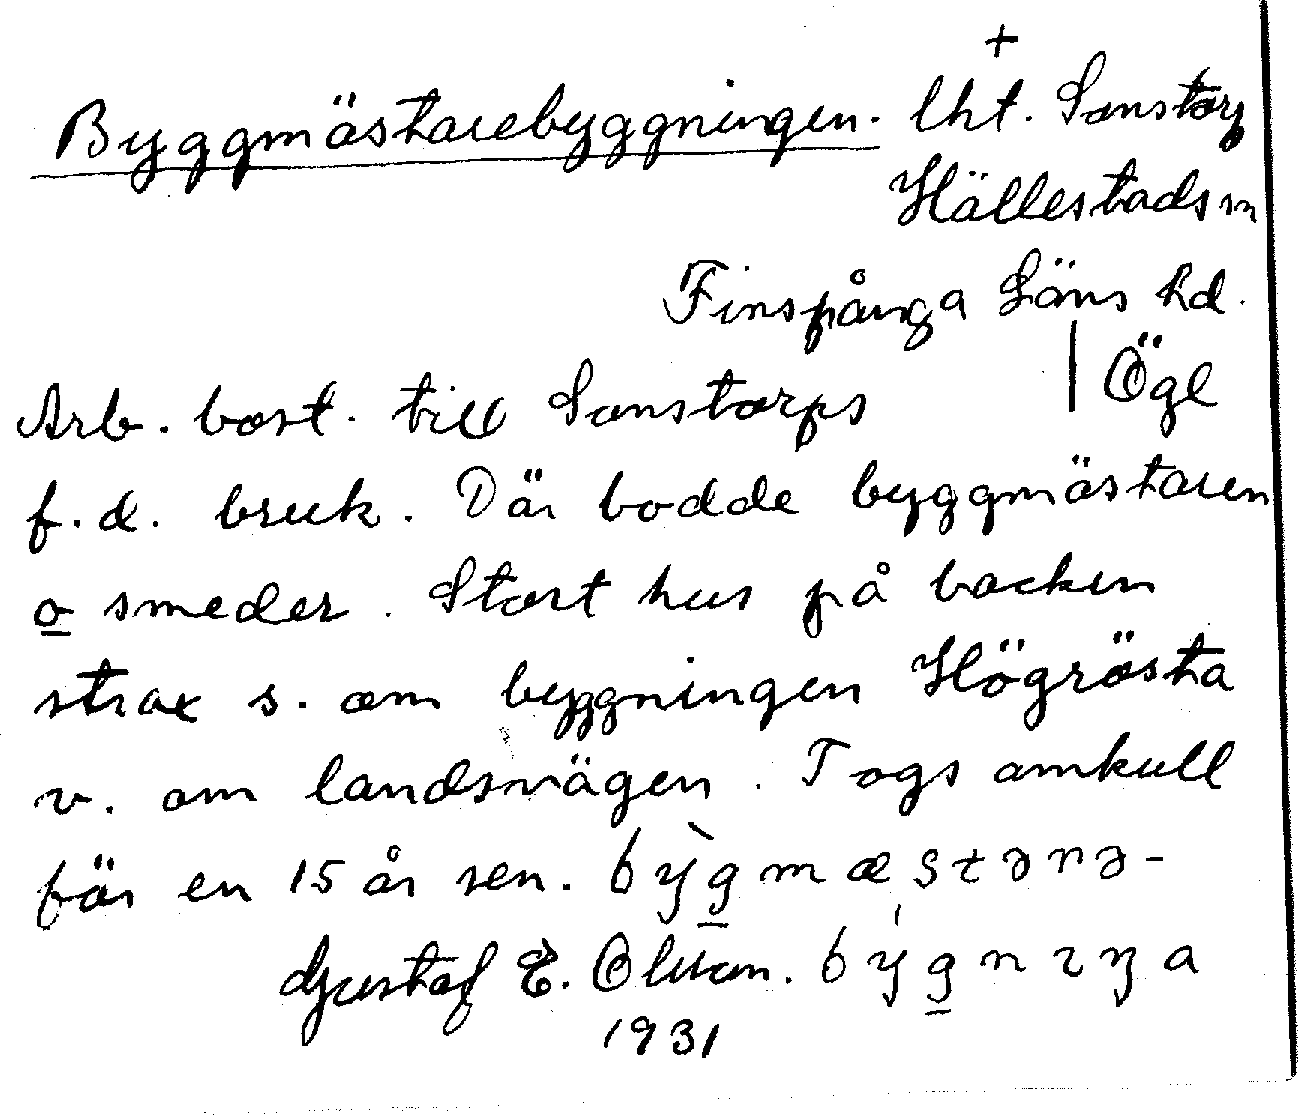 +
Byggmästarebyggningen. lht. Sonstorp
Hällestads sn
Finspånga Läns hd.
Ögl
Arb. bost. till Sonstorps
f.d. bruk. Där bodde byggmästaren
o smeder. Stort hus på backen
strax s. om byggningen Högrösta
v. om landsvägen. Togs omkull
för en 15 år sen. bỳg̲mæstərə-
Gustaf E. Olsson. býg̲nɩŋa
1931